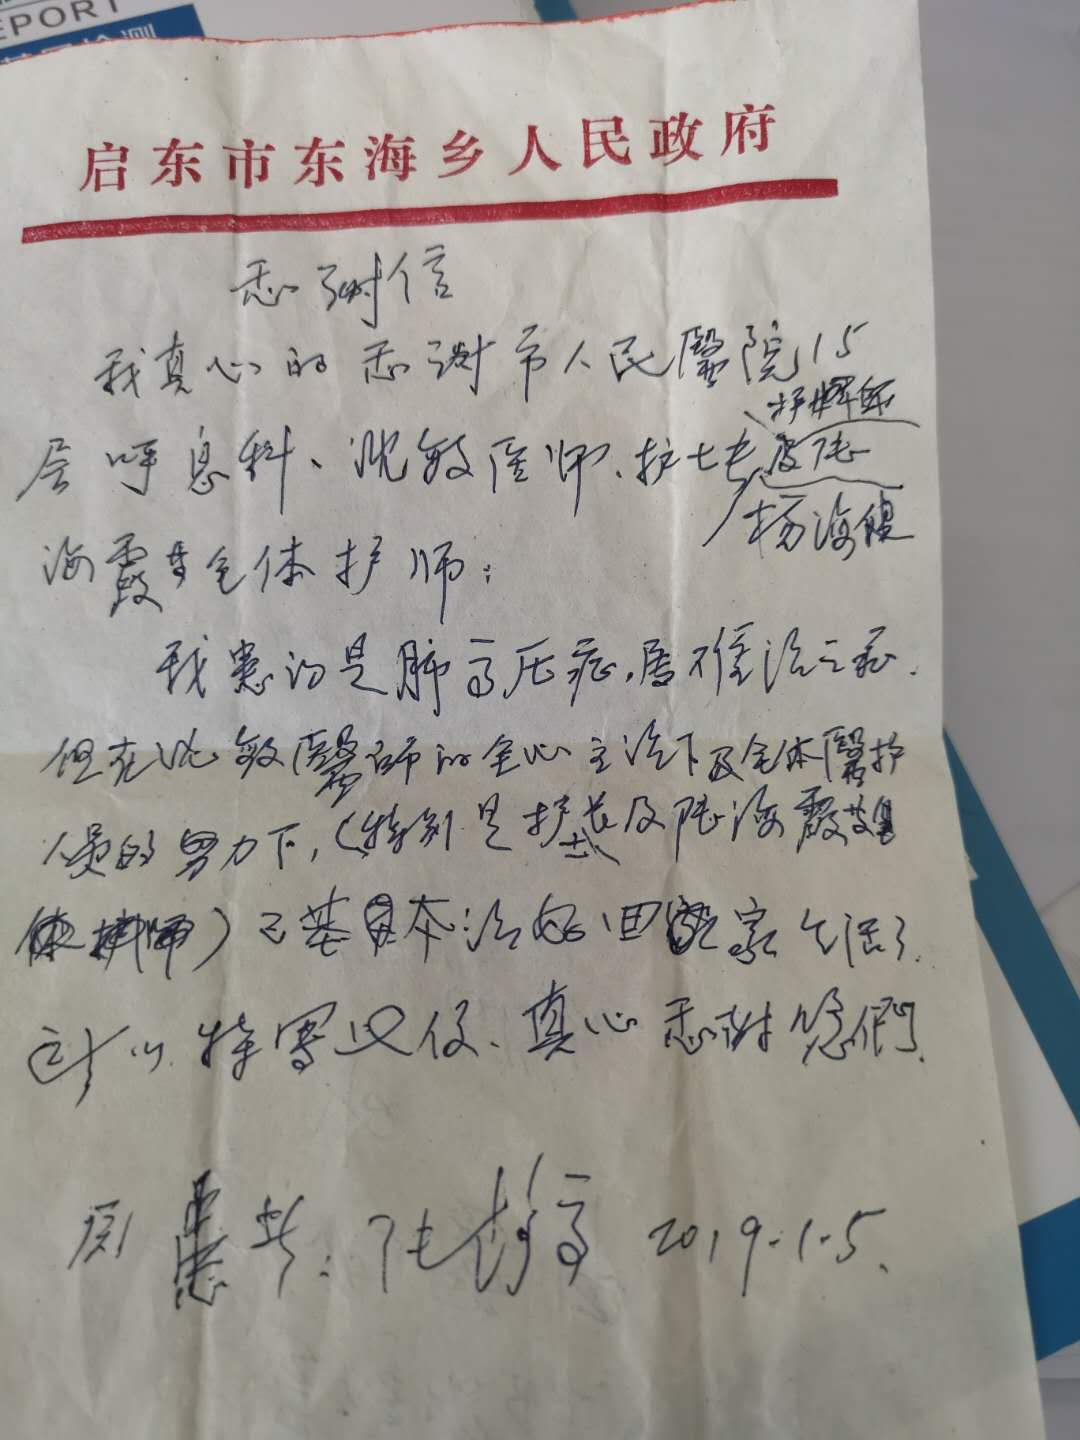 EPORT
启东市东海乡人民政府
感谢信
我真心的感谢市人民醫院15
层呼息科、沈敏医师、护士长及陆
杨海健
海霞等全体护师：
我患的是肺高压症，属难治之症.
但在沈敏醫师的全心主治下及全体醫护
人员的努力下，（特别是护士长及陆海霞
）已基本治好回家生活了.
所以特写此信、真心感谢您們.
原患者：张 高 2019.1.5.